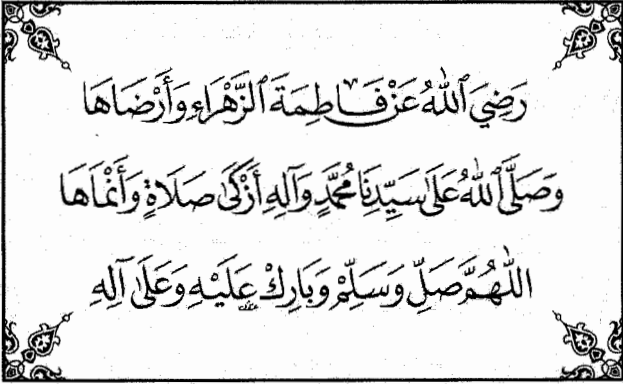 رَضِيَ ٱللهُ عَنْ فَاطِمَةَ ٱلزَّهْرَاءِ وَأَرْضَاهَا
وَصَلَّى ٱللهُ عَلَى سَيِّدِنَا مُحَمَّدٍ وَآلِهِ أَزْكَىٰ صَلَاةٍ وَأَنْمَاهَا
اللّٰهُمَّ صَلِّ وَسَلِّمْ وَبَارِكْ عَلَيْهِ وَعَلَىٰ آلِهِ